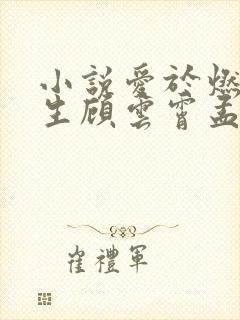 小說愛於燃
生頋雲霄孟
崔禮軍